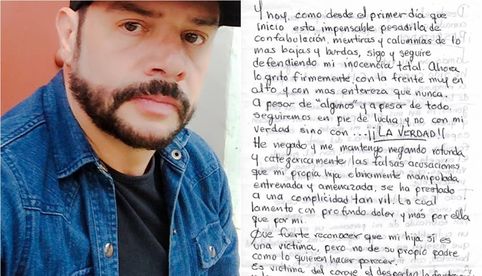 Y hoy, como desde el primer día que
inicio esta impensable pesadilla de
confabulación mentiras y calumnias de lo
mas bajas y burdas, sigo y seguire
defendiendo mi inocencia total. Ahora
lo grito firmemente, con la frente muy en
alto y con mas entereza que nunca.
A pesar de "algunos" y a pesar de todo,
seguiremos en pie de lucha y no con mi
verdad sino con... ¡¡¡LA VERDAD!!
He negado y me mantengo negando rotunda
y categóricamente las falsas acusaciones
que mi propia hija obviamente manipulada,
entrenada y amenazada, se ha prestado
a una complicidad tan vil. Lo cual
lamento con profundo dolor y más por ella
que por mi.
Que fuerte reconocer que mi hija sí es
una víctima, pero no de su propio padre
como lo quieren hacer parecer.
Es víctima del coraje, el